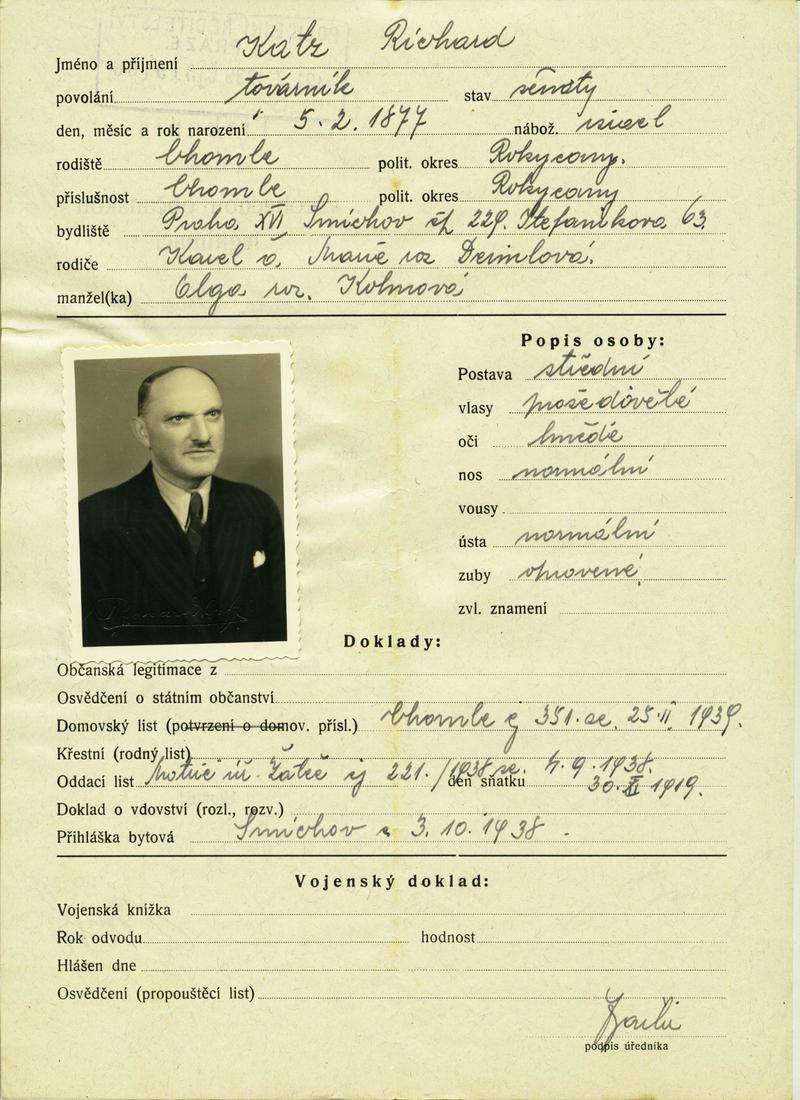 Jméno a příjmení Katz Richard
povolání továrník stav ženatý
den, měsíc a rok narození 5. 2. 1877 nábož. israel
rodiště Chomle polit. okres Rokycany.
příslušnost Chomle polit. okres Rokycany
bydliště Praha XVI, Smíchov čp 229. Štefánikova 63.
rodiče Karel a Marie roz Deimlová.
manžel(ka) Olga roz. Kohnová
Popis osoby:
Postava střední
vlasy prošedivělé
oči hnědé
nos normální
vousy
ústa normální
zuby opravené
zvl. znamení
Doklady:
Občanská legitimace z
Osvědčení o státním občanství
Domovský list (potvrzení o domov. přísl.) Chomle čj 351. ze 25. II. 1939.
Křestní (rodný list)
Oddací list Matrič. úř. Žatec čj 221./1938 ze 4. 9. 1938. den sňatku 30. XI 1919.
Doklad o vdovství (rozl., rozv.)
Přihláška bytová Smíchov z 3. 10. 1938.
Vojenský doklad:
Vojenská knížka
Rok odvodu hodnost
Hlášen dne
Osvědčení (propouštěcí list)
podpis úředníka